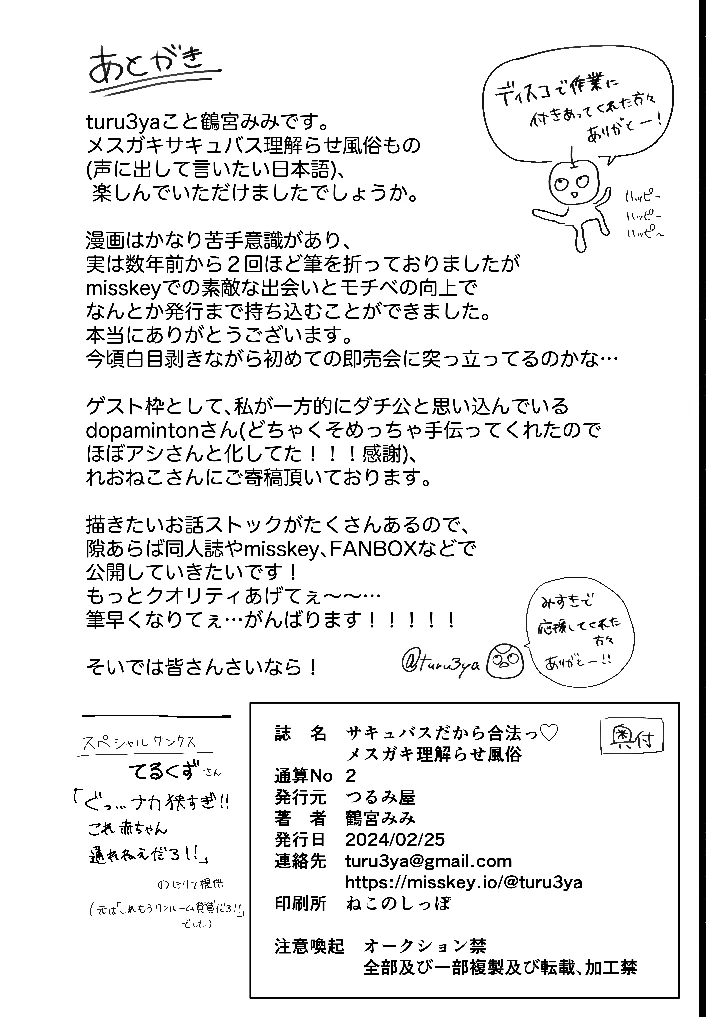 あとがき
ディスコで作業に
付きあってくれた方々
ありがとー！
ハッピー
ハッピー
ハッピー
turu3yaこと鶴宮みみです。
メスガキサキュバス理解らせ風俗もの
(声に出して言いたい日本語)、
楽しんでいただけましたでしょうか。
漫画はかなり苦手意識があり、
実は数年前から２回ほど筆を折っておりましたが
misskeyでの素敵な出会いとモチベの向上で
なんとか発行まで持ち込むことができました。
本当にありがとうございます。
今頃白目剥きながら初めての即売会に突っ立ってるのかな…
ゲスト枠として、私が一方的にダチ公と思い込んでいる
dopamintonさん(どちゃくそめっちゃ手伝ってくれたので
ほぼアシさんと化してた！！！感謝)、
れおねこさんにご寄稿頂いております。
描きたいお話ストックがたくさんあるので、
隙あらば同人誌やmisskey、FANBOXなどで
公開していきたいです！
もっとクオリティあげてぇ〜〜…
筆早くなりてぇ…がんばります！！！！！
そいでは皆さんさいなら！
@turu3ya
みすきで
応援してくれた
方々
ありがとー!!
スペシャルサンクス
てるくずさん
「ぐっ…ナカ狭すぎ!!
これ赤ちゃん
通れねえだろ!!」
のセリフ提供
(元は「これもうワンルーム賃貸だろ!!」
でした)
奥付
誌　名　サキュバスだから合法っ♡
メスガキ理解らせ風俗
通算No　2
発行元　つるみ屋
著　者　鶴宮みみ
発行日　2024/02/25
連絡先　turu3ya@gmail.com
https://misskey.io/@turu3ya
印刷所　ねこのしっぽ
注意喚起　オークション禁
全部及び一部複製及び転載、加工禁